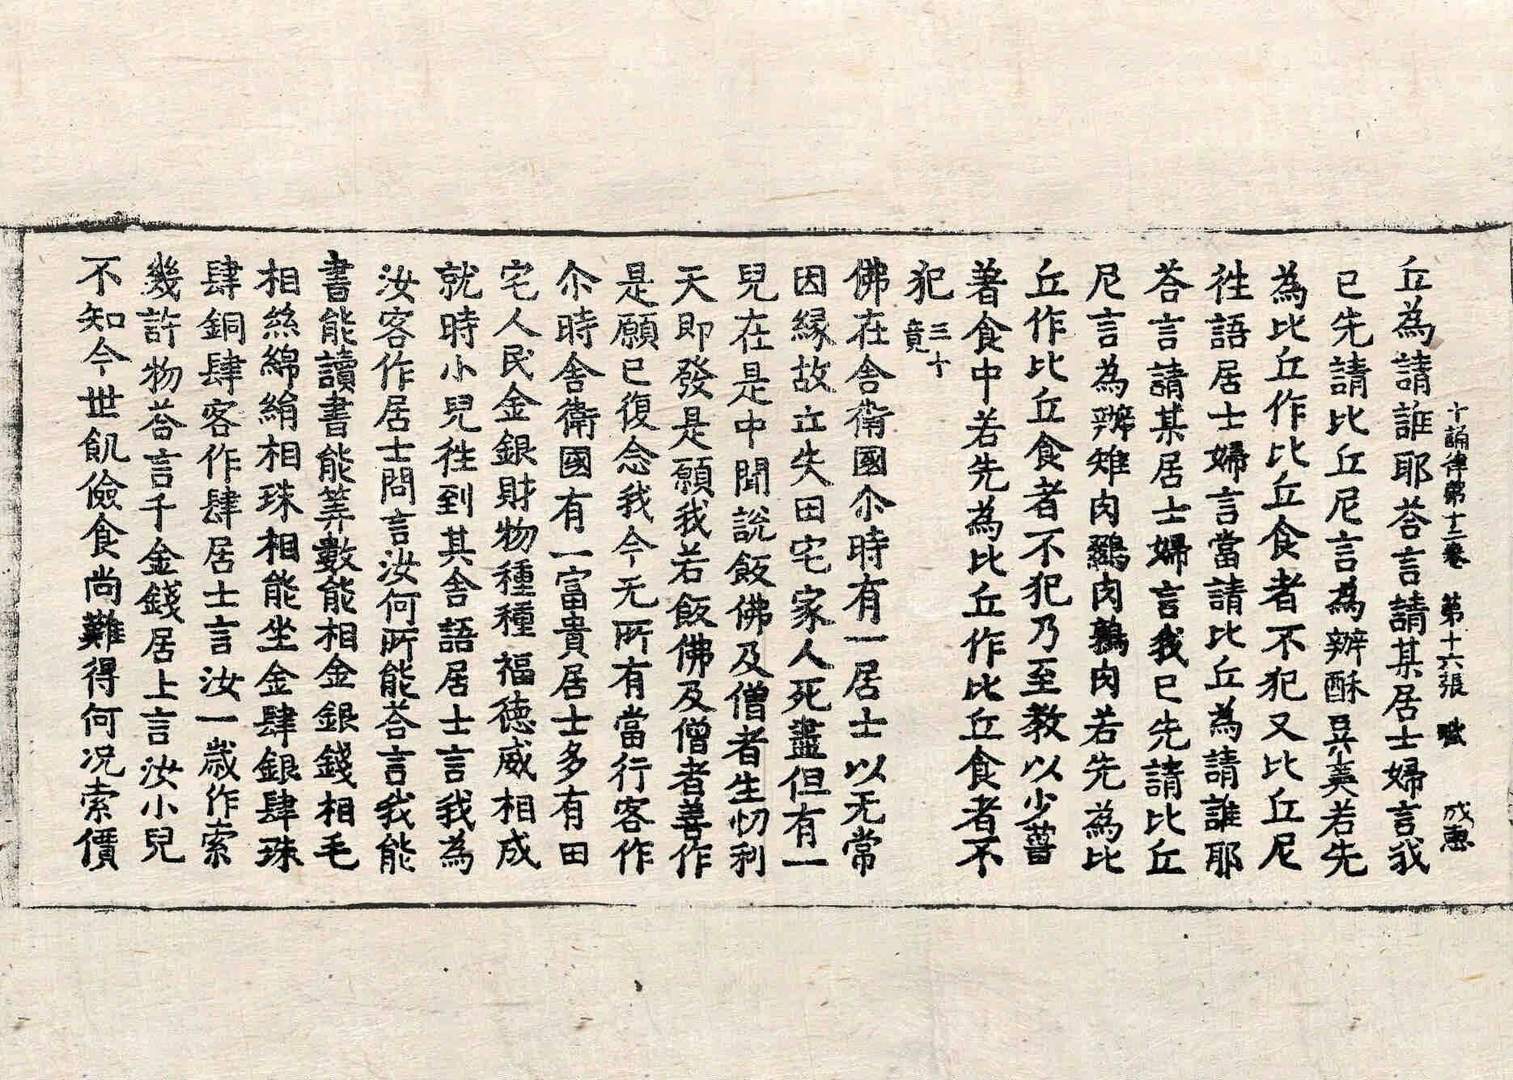 丘為請誰耶荅言請某居士婦言我
已先請比丘尼言為辦酥豆羹若先
為比丘作比丘食者不犯又比丘尼
徃語居士婦言當請比丘為請誰耶
荅言請某居士婦言我已先請比丘
尼言為辦雉肉鷄肉鶉肉若先為比
丘作比丘食者不犯乃至教以少薑
著食中若先為比丘作比丘食者不
犯 三十竟
佛在舍衛國尒時有一居士以无常
因緣故亡失田宅家人死盡但有一
兒在是中聞說飯佛及僧者生忉利
天即發是願我若飯佛及僧者善作
是願已復念我今无所有當行客作
尒時舍衛國有一富貴居士多有田
宅人民金銀財物種種福德威相成
就時小兒徃到其舍語居士言我為
汝客作居士問言汝何所能荅言我能
書能讀書能筭數能相金銀錢相毛
相絲綿絹相珠相能坐金肆銀肆珠
肆銅肆客作肆居士言汝一歲作索
幾許物荅言千金錢居士言汝小兒
不知今世飢儉食尚難得何况索價
十誦律第十二卷 第十六張 賦 成惠